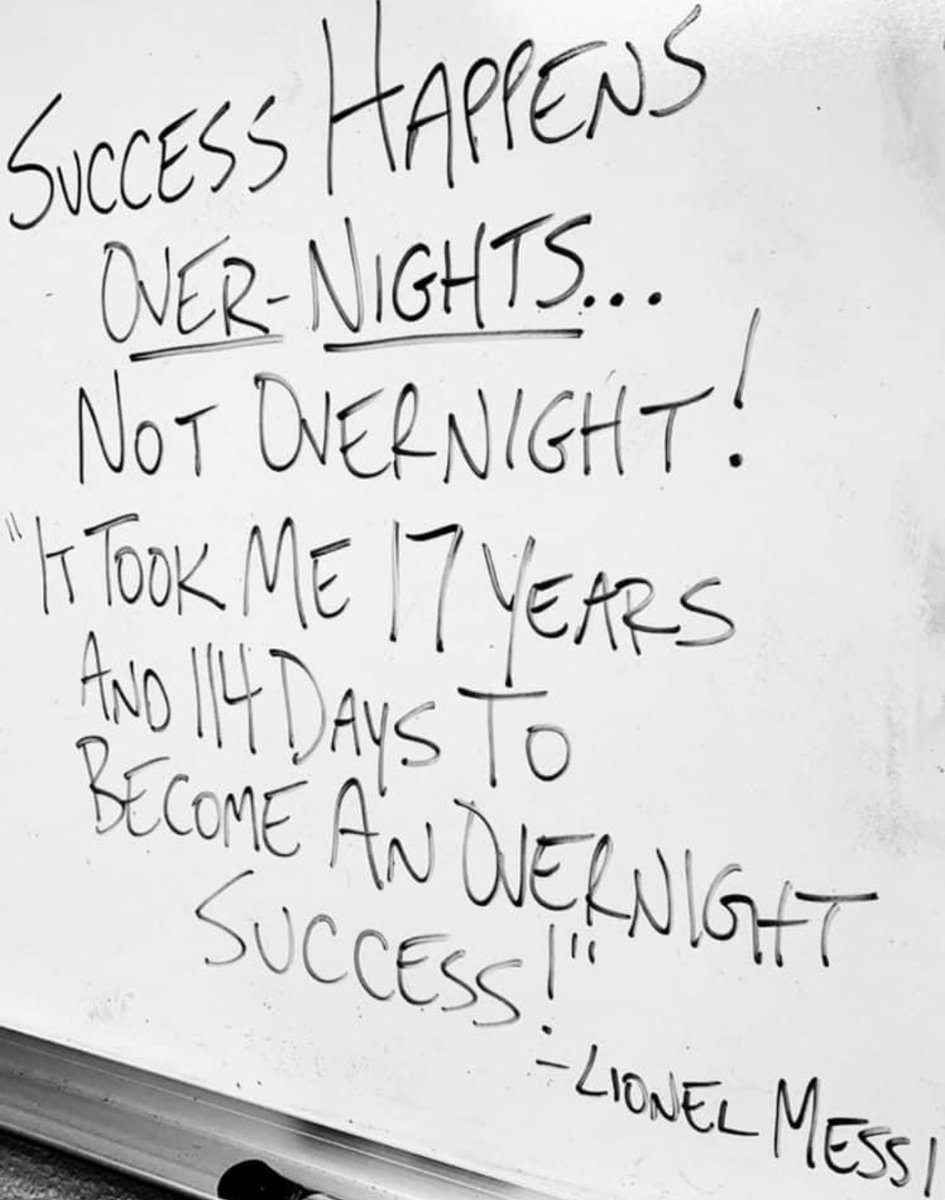 SUCCESS HAPPENS
OVER-NIGHTS...
NOT OVERNIGHT!
"IT TOOK ME 17 YEARS
AND 114 DAYS TO
BECOME AN OVERNIGHT
SUCCESS!"
-LIONEL MESSI